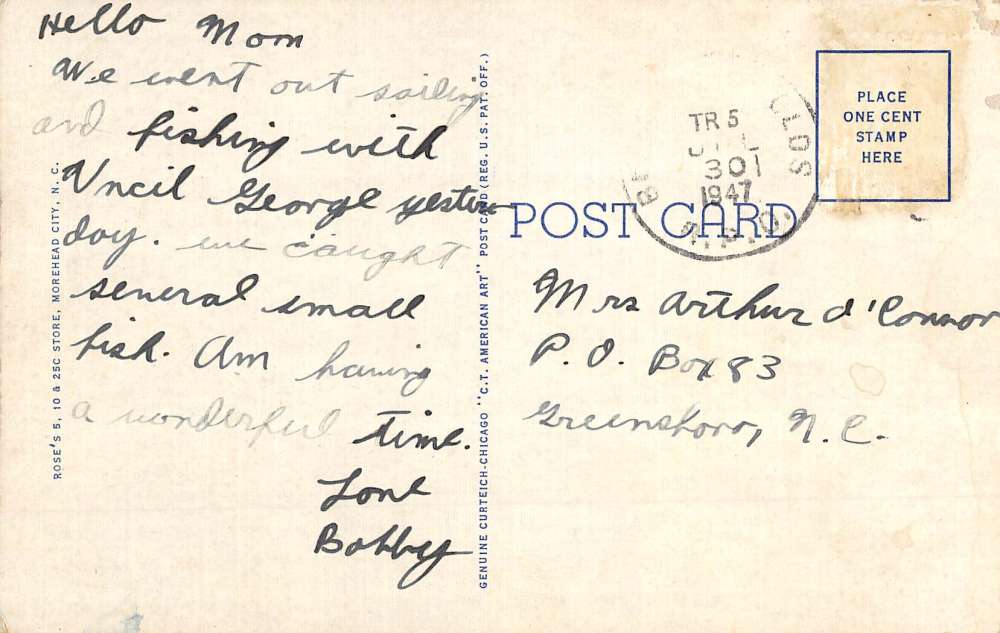 Hello Mom
We went out sailing
and fishing with
Uncil George yester
day. we caught
several small
fish. Am having
a wonderful time.
Love
Bobby
ROSE'S 5, 10 & 25C STORE, MOREHEAD CITY, N. C.
GENUINE CURTEICH-CHICAGO "C.T. AMERICAN ART" POST CARD (REG. U. S. PAT. OFF.)
POST CARD
PLACE
ONE CENT
STAMP
HERE
TR 5
1947
R.P.O.
Mrs Arthur O'Connor
P. O. Box 83
Greensboro, N. C.